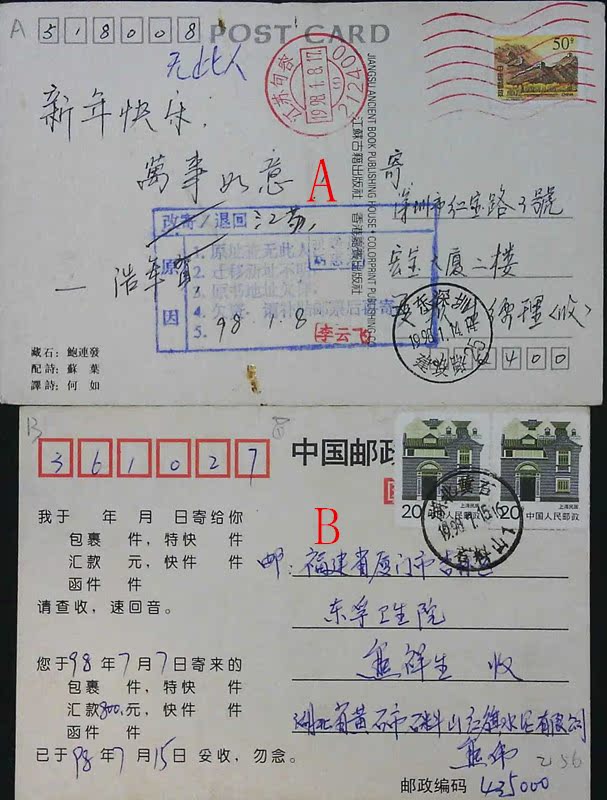 A
518008
POST CARD
无此人
新年快乐.
萬事如意
A
寄
深圳市红宝路3號
宏生大厦二楼
改寄/退回 江苏
原因
1. 原址查无此人
2. 迁移新址不明
3. 原书地址欠详
5.
98.1.8
李云飞
江苏句容
1998.1.8.17
(9)
212400
50分
JIANGSU ANCIENT BOOK PUBLISHING HOUSE • COLORPRINT PUBLISHING
江蘇古籍出版社 香港嘉賓出版社
400
藏石：鮑連發
配詩：蘇 葉
譯詩：何 如
B
361027
中国邮政
B
20
中国人民邮政
上海民居
20
中国人民邮政
上海民居
我于 年 月 日寄给你
包裹 件，特快 件
汇款 元，快件 件
函件 件
请查收，速回音。
福建省厦门市
东孚卫生院
祥生 收
您于98年7月7日寄来的
包裹 件，特快 件
汇款800元，快件 件
函件 件
已于98年7月15日妥收，勿念。
湖北省黄石市
水泥有限公司
256
邮政编码 435000